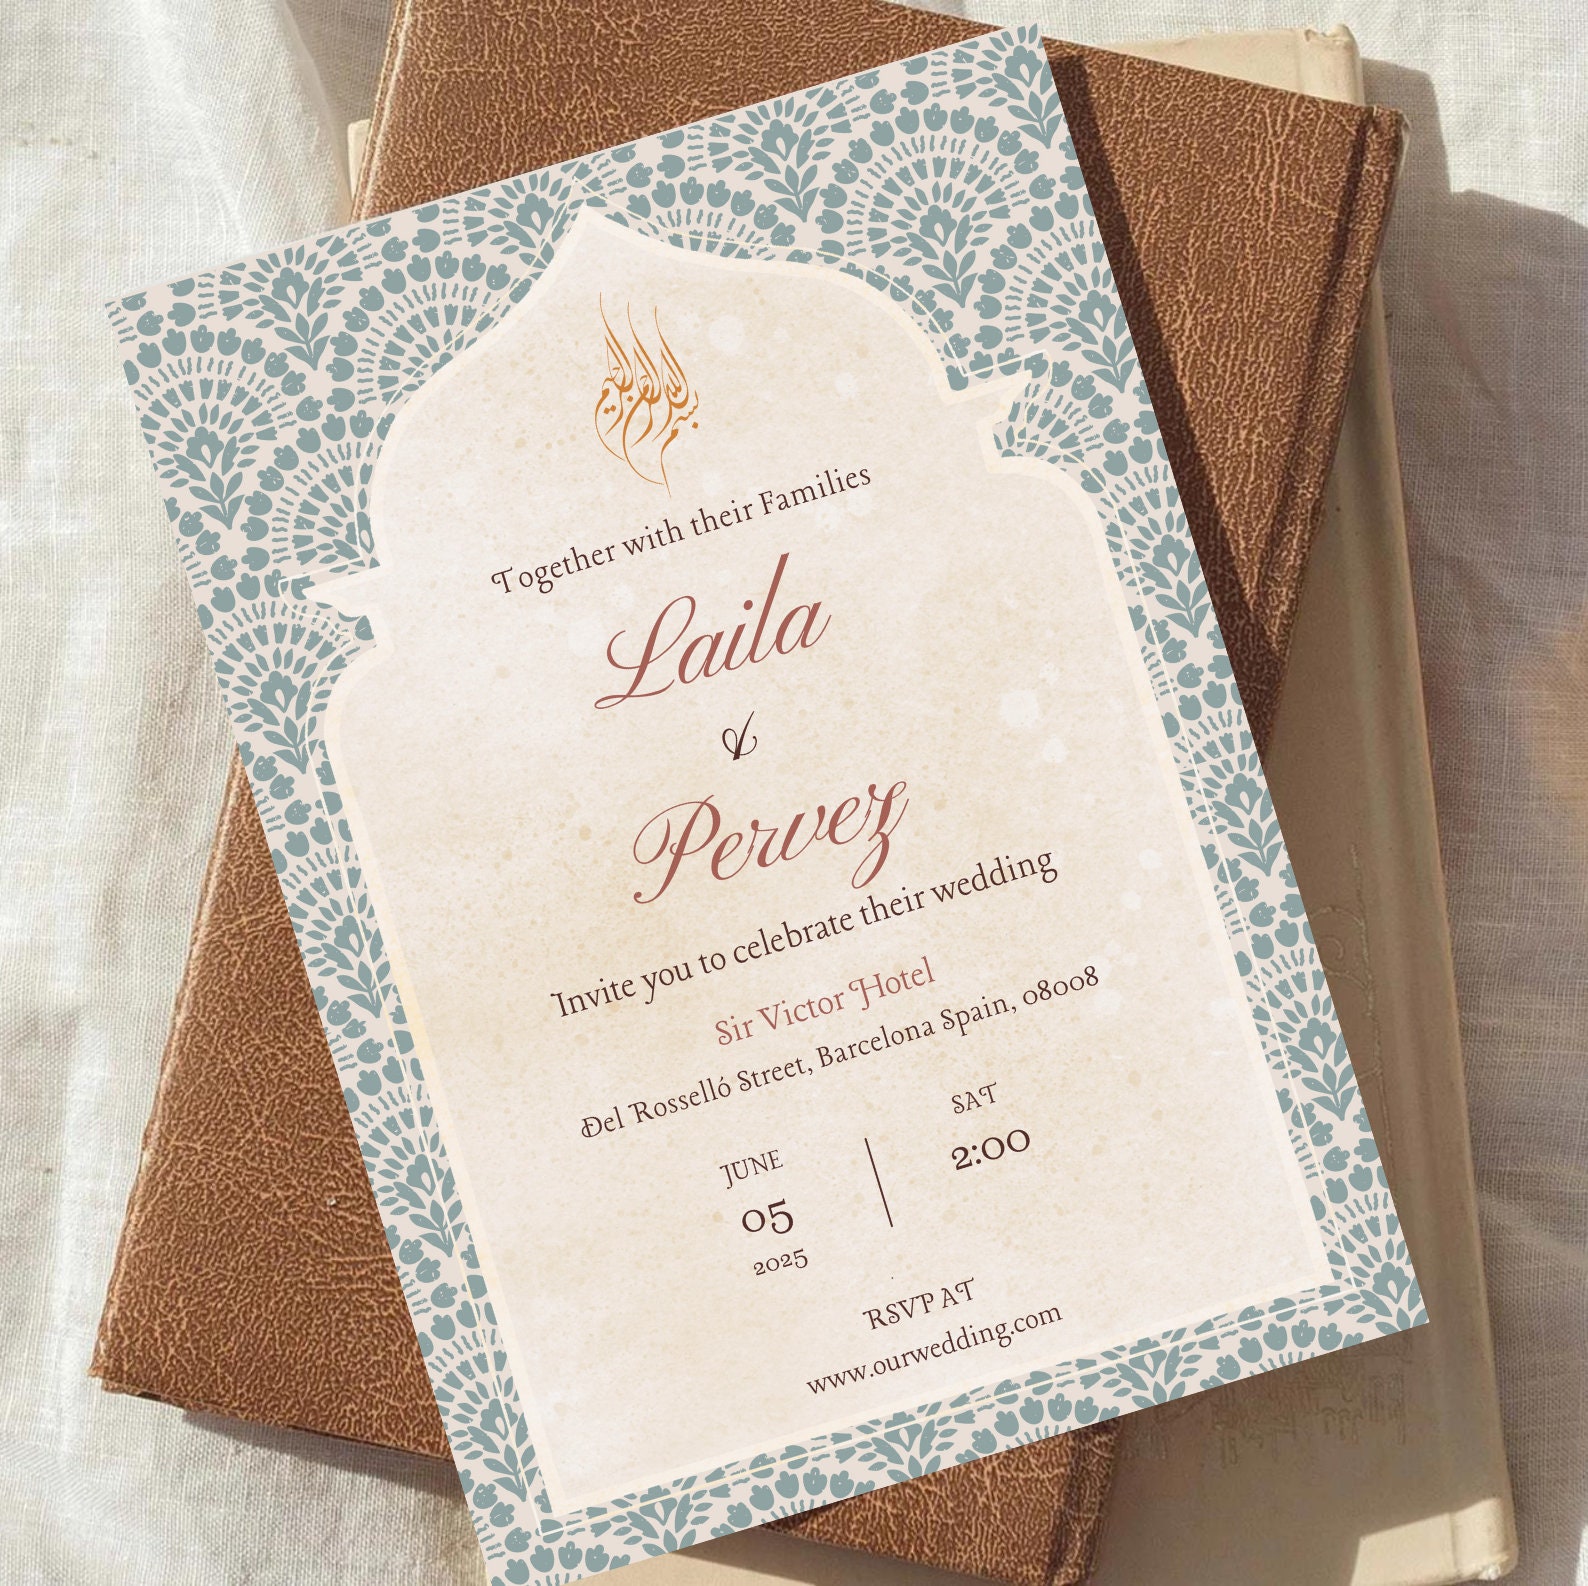 بسم الله الرحمن الرحيم
Together with their Families
Laila
&
Pervez
Invite you to celebrate their wedding
Sir Victor Hotel
Del Rosselló Street, Barcelona Spain, 08008
JUNE
05
2025
SAT
2:00
RSVP AT
www.ourwedding.com